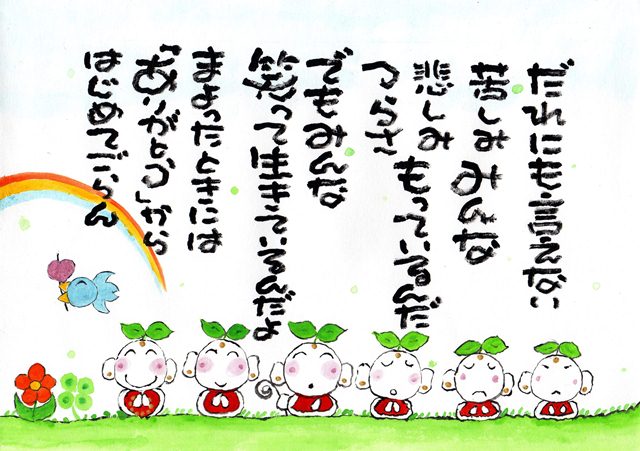 だれにも言えない
苦しみ
悲しみ
つらさ
みんな
もっているんだ
でもみんな
笑って生きているんだよ
まよったときには
「ありがとう」から
はじめてごらん